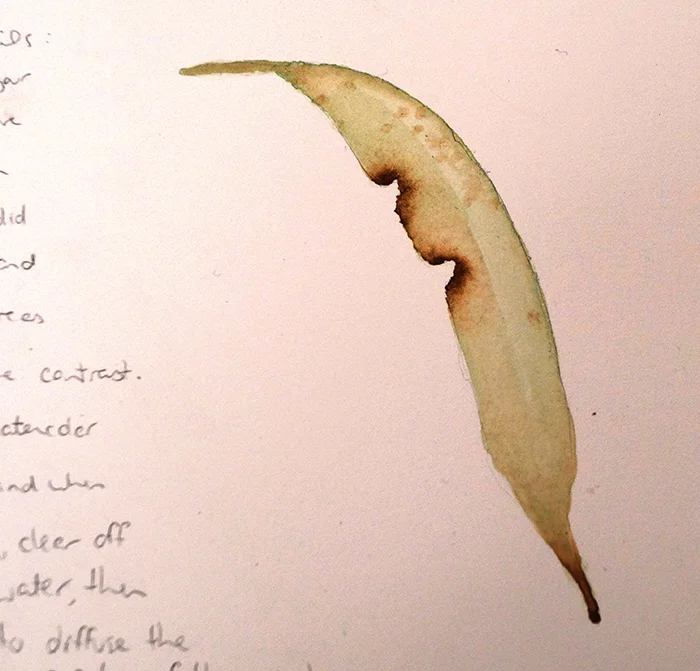 ils:
gar
ve
did
and
rees
e contrast.
atercolor
and when
, clear off
water, then
to diffuse the